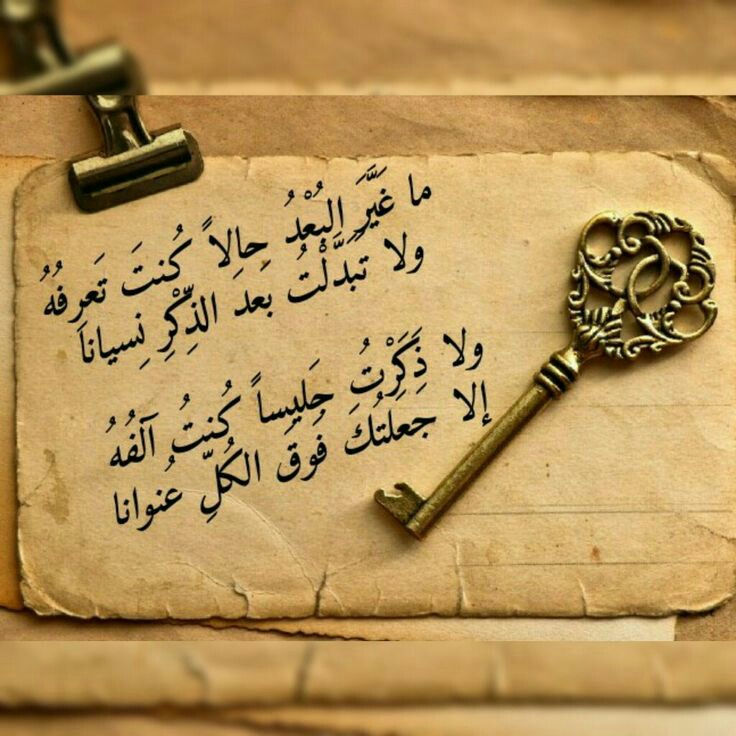 ما غَيَّرَ البُعْدُ حالاً كُنتَ تَعرِفُهُ
ولا تَبَدَّلْتُ بَعدَ الذِّكْرِ نِسيانا
ولا ذَكَرْتُ جَليساً كُنتُ آلَفُهُ
إلا جَعَلتُكَ فَوقَ الكُلِّ عُنوانا